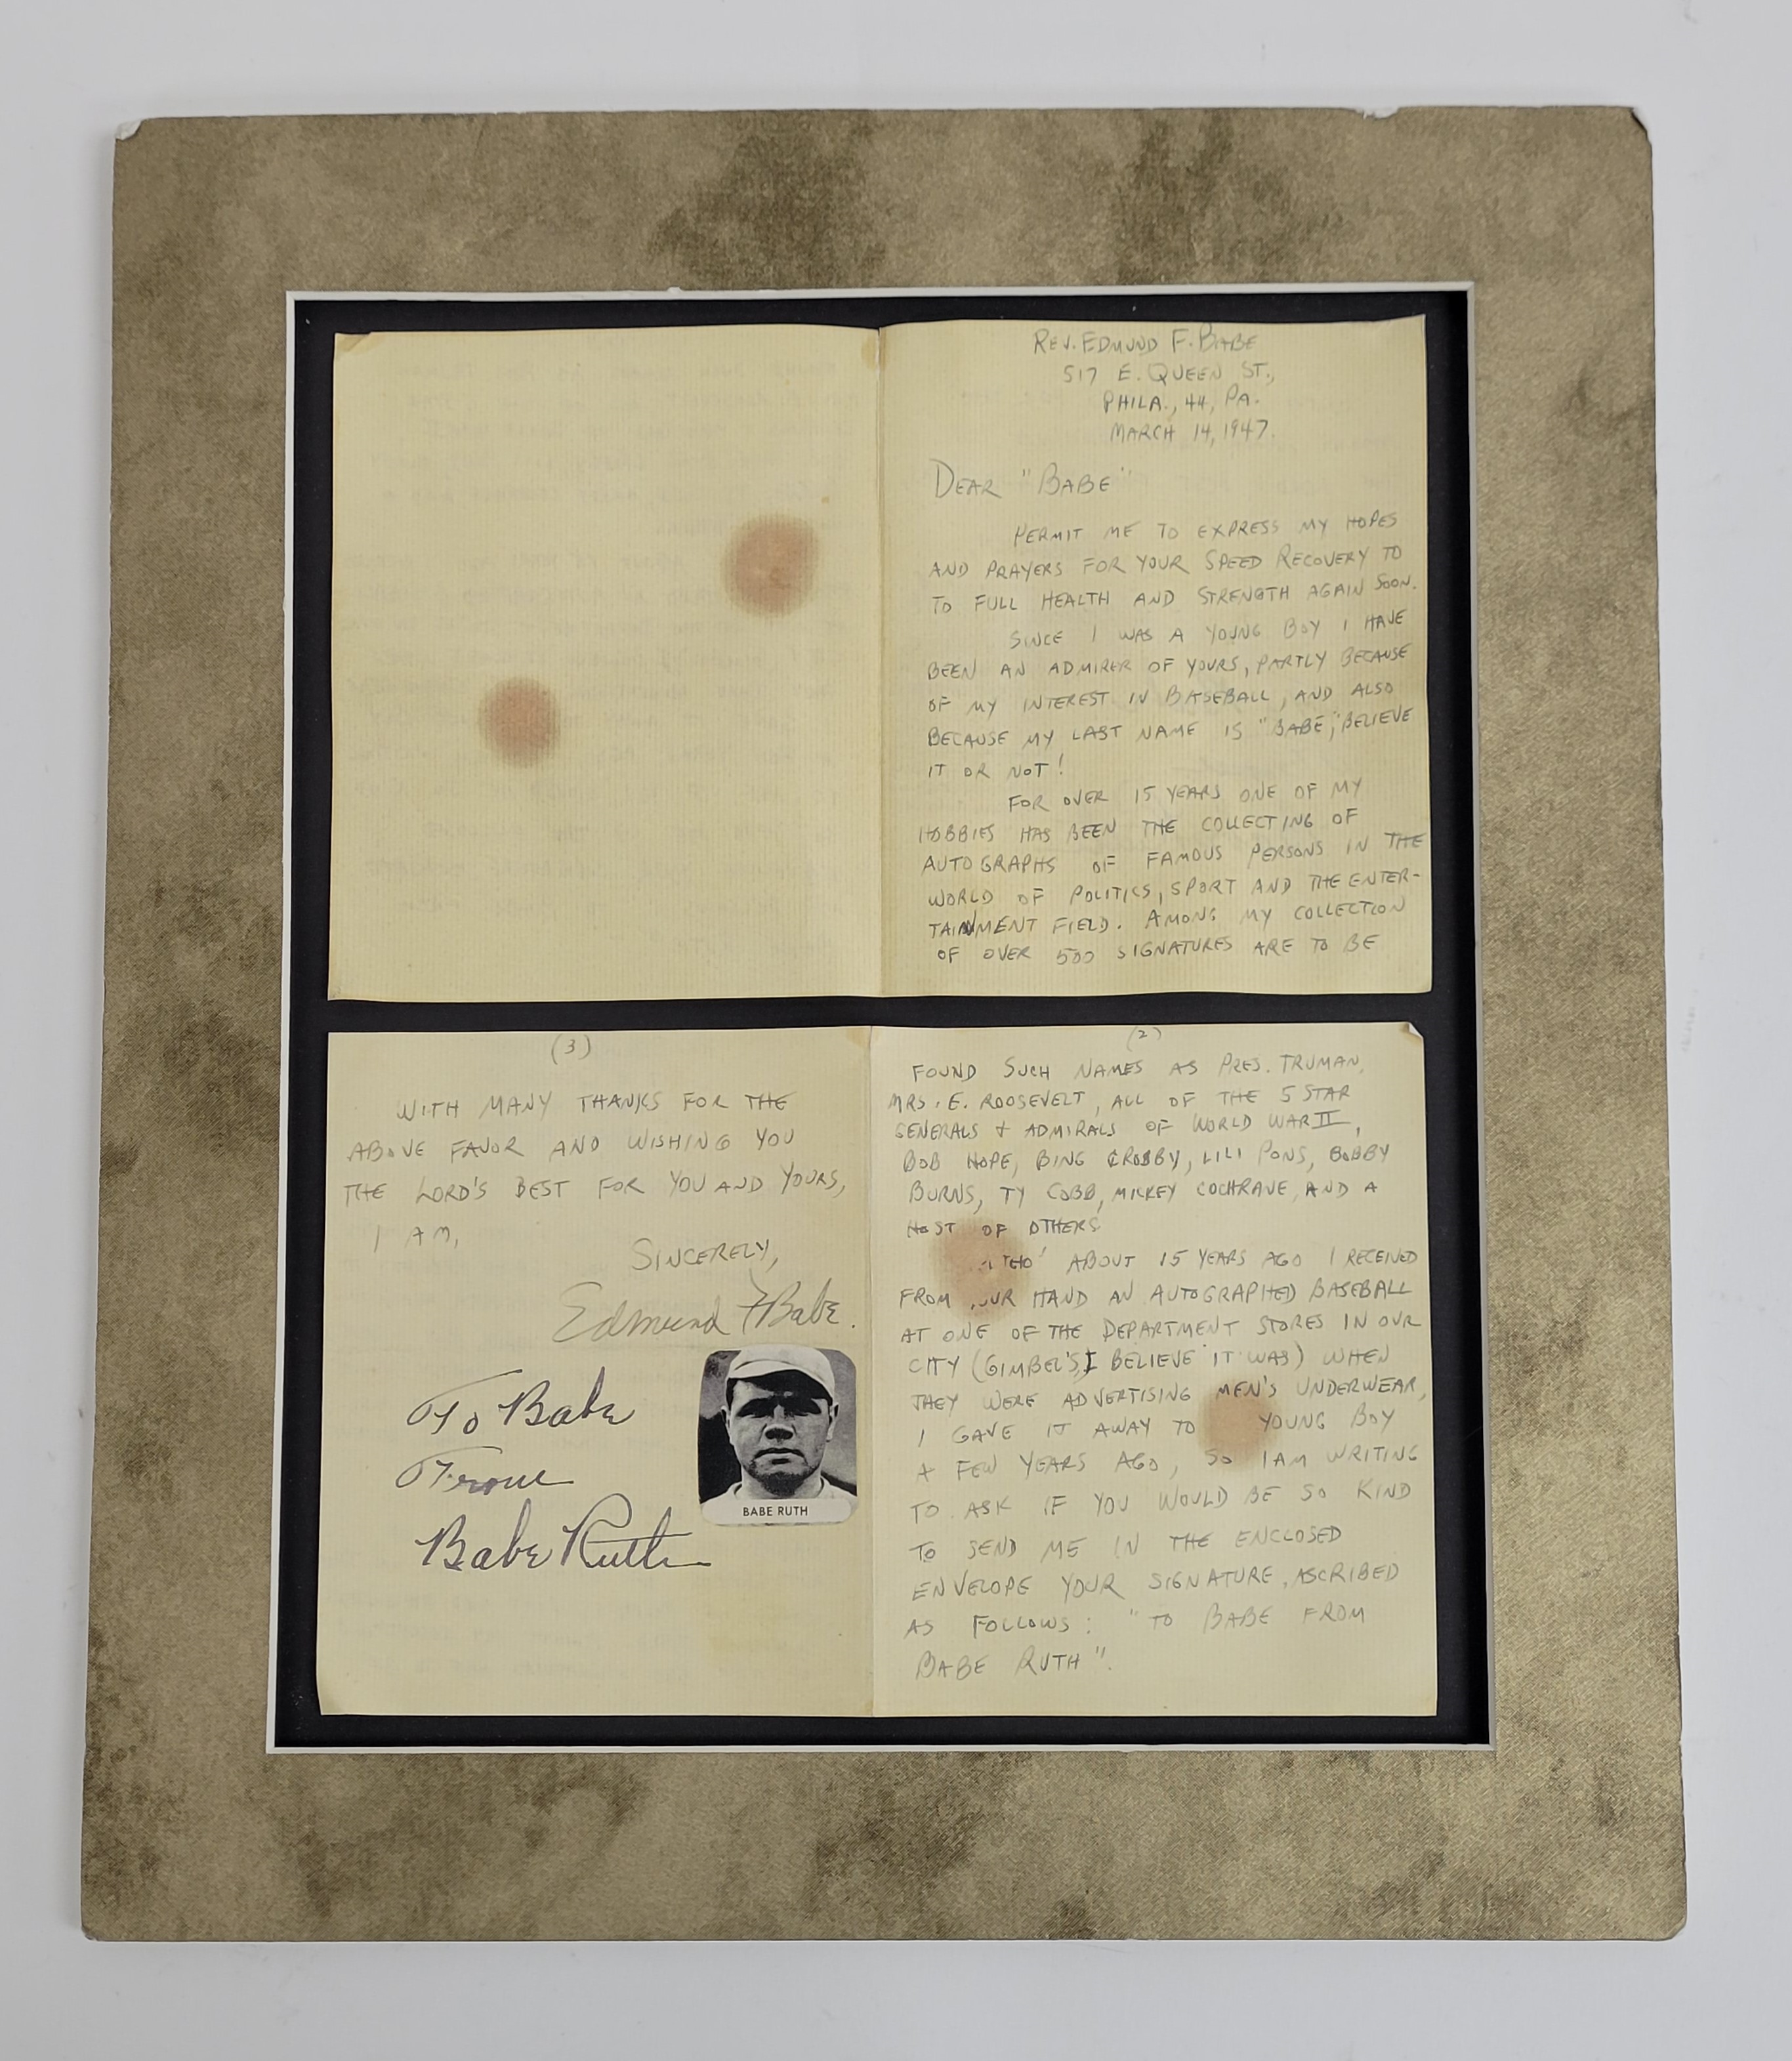 REV. EDMUND F. BABE
517 E. QUEEN ST.,
PHILA., 44, PA.
MARCH 14, 1947.
DEAR "BABE"
PERMIT ME TO EXPRESS MY HOPES
AND PRAYERS FOR YOUR SPEED RECOVERY TO
TO FULL HEALTH AND STRENGTH AGAIN SOON.
SINCE I WAS A YOUNG BOY I HAVE
BEEN AN ADMIRER OF YOURS, PARTLY BECAUSE
OF MY INTEREST IN BASEBALL, AND ALSO
BECAUSE MY LAST NAME IS "BABE", BELIEVE
IT OR NOT!
FOR OVER 15 YEARS ONE OF MY
HOBBIES HAS BEEN THE COLLECTING OF
AUTOGRAPHS OF FAMOUS PERSONS IN THE
WORLD OF POLITICS, SPORT AND THE ENTER-
TAINMENT FIELD. AMONG MY COLLECTION
OF OVER 500 SIGNATURES ARE TO BE
(2)
FOUND SUCH NAMES AS PRES. TRUMAN,
MRS. E. ROOSEVELT, ALL OF THE 5 STAR
GENERALS + ADMIRALS OF WORLD WAR II,
BOB HOPE, BING CROSBY, LILI PONS, BOBBY
BURNS, TY COBB, MICKEY COCHRANE, AND A
HOST OF OTHERS.
ABOUT 15 YEARS AGO I RECEIVED
FROM HAND AN AUTOGRAPHED BASEBALL
AT ONE OF THE DEPARTMENT STORES IN OUR
CITY (GIMBEL'S, I BELIEVE IT WAS) WHEN
THEY WERE ADVERTISING MEN'S UNDERWEAR,
I GAVE IT AWAY TO YOUNG BOY
A FEW YEARS AGO, SO I AM WRITING
TO ASK IF YOU WOULD BE SO KIND
TO SEND ME IN THE ENCLOSED
ENVELOPE YOUR SIGNATURE, ASCRIBED
AS FOLLOWS: "TO BABE FROM
BABE RUTH".
(3)
WITH MANY THANKS FOR THE
ABOVE FAVOR AND WISHING YOU
THE LORD'S BEST FOR YOU AND YOURS,
I AM,
SINCERELY,
Edmund F Babe.
To Babe
From
Babe Ruth
BABE RUTH